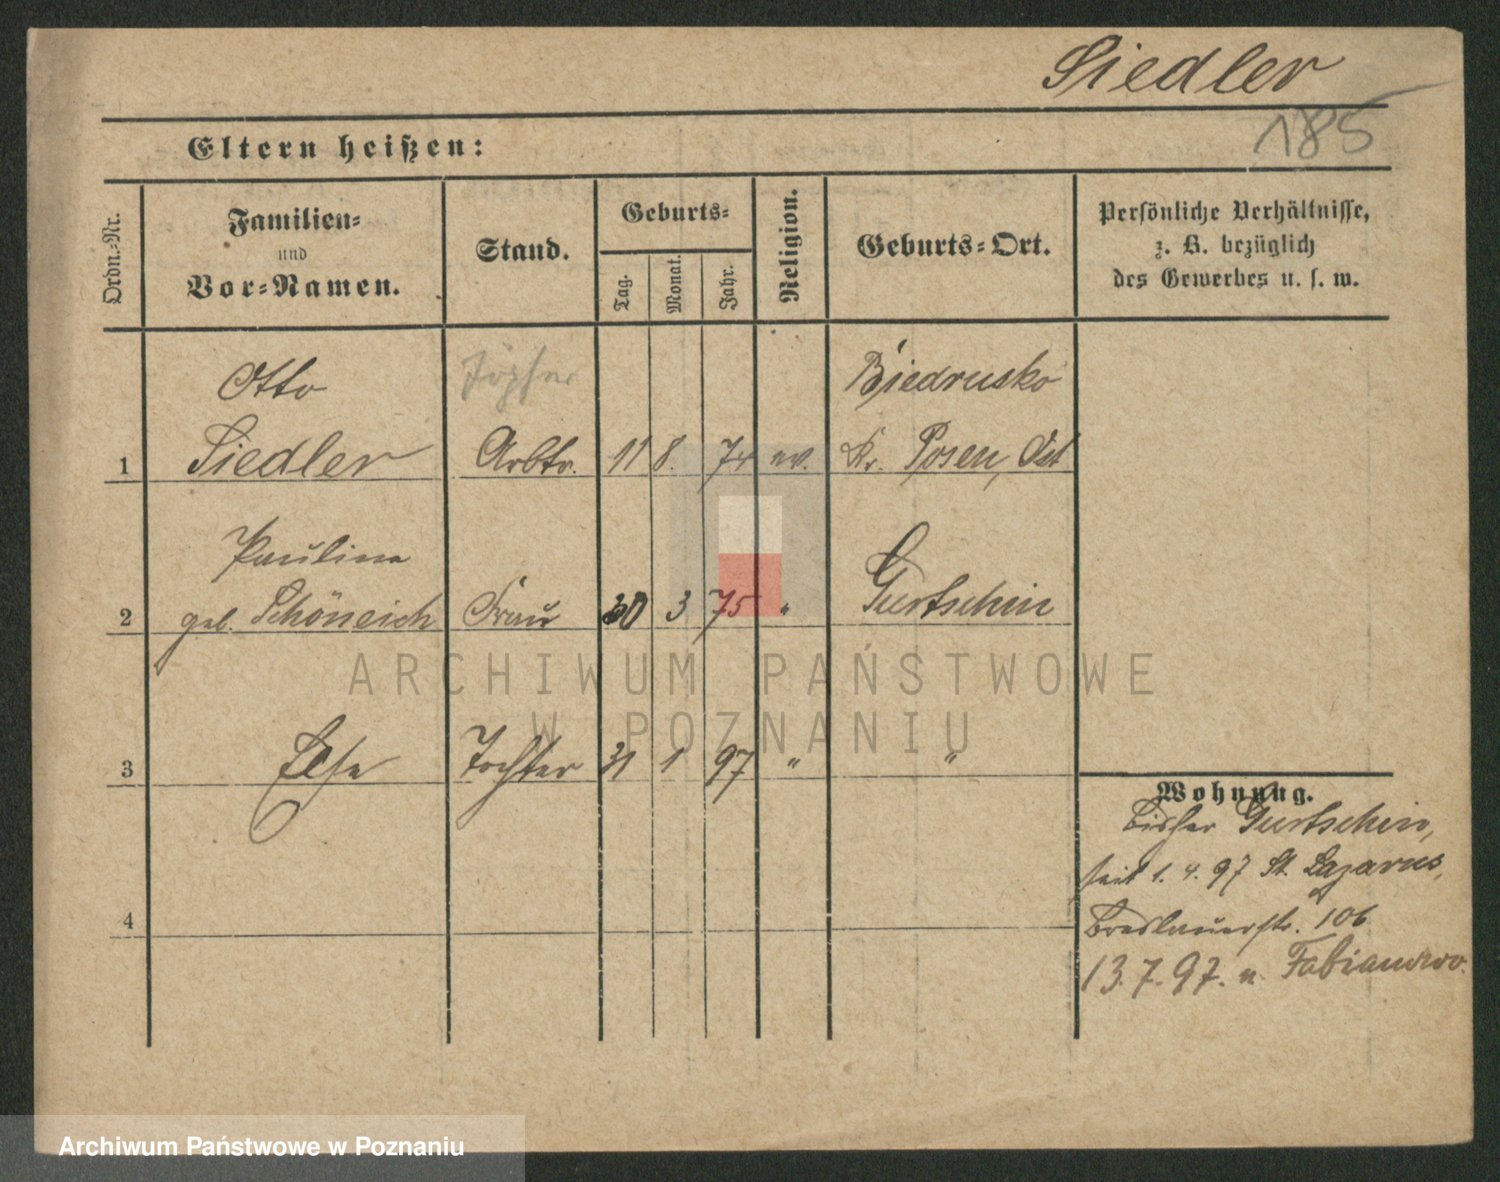 Siedler
185
Eltern heißen:
Ordn.-Nr.
Familien-
und
Vor-Namen.
Stand.
Geburts-
Tag.
Monat.
Jahr.
Religion.
Geburts-Ort.
Persönliche Verhältnisse,
z. B. bezüglich
des Gewerbes u. s. w.
Otto
Töpfer
Biedrusko
1 Siedler Arbtr. 11 8. 74 ev. Kr. Posen, Ost
Paulina
2 geb. Schöneich Frau 30 3 75 " Gurtschin
ARCHIWUM PAŃSTWOWE
W POZNANIU
3 Else Tochter 31 1 97 " "
Wohnung.
bisher Gurtschin,
seit 1. 4. 97 St. Lazarus,
4
Breslauerstr. 106
13. 7. 97. n. Fabianowo.
Archiwum Państwowe w Poznaniu